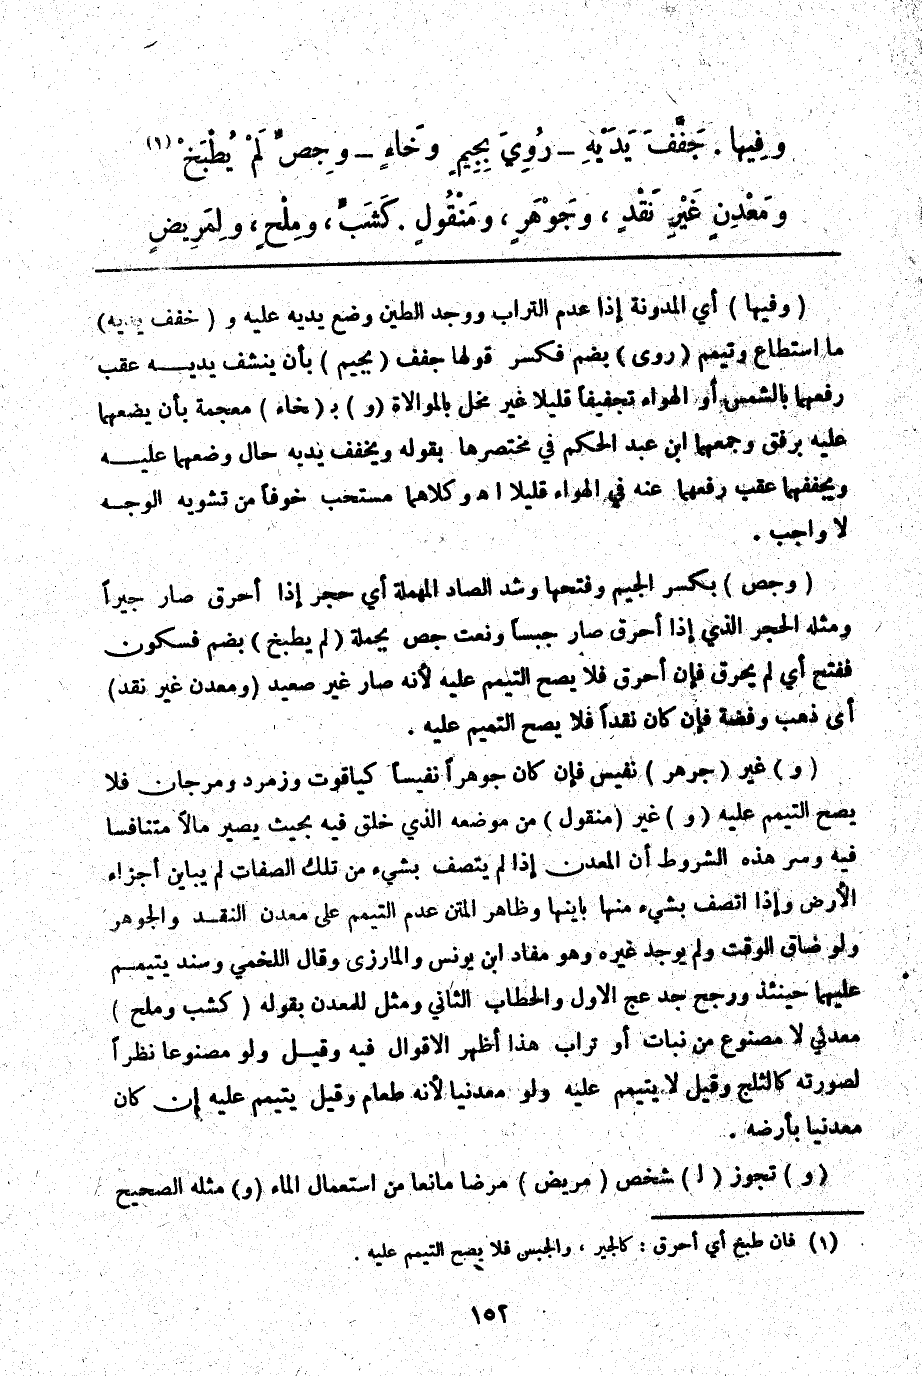 و فِيها . جَفَّفَ يَدَيْهِ – رُوِيَ بِجِيمٍ وَخَاءٍ – و جِصٌّ لَمْ يُطْبَخْ (١)
و مَعْدِنٍ غَيْرِ نَقْدٍ ، و جَوْهَرٍ ، و مَنْقُولٍ . كَشَبٍّ ، و مِلْحٍ ، و لِمَرِيضٍ
( وفيها ) أي المدونة إذا عدم التراب ووجد الطين وضع يديه عليه و ( خفف يديه )
ما استطاع وتيمم ( روى ) بضم فكسر قولها جفف ( بجيم ) بأن ينشف يديه عقب
رفعهما بالشمس أو الهواء تجفيفاً قليلا غير مخل بالموالاة (و ) بـ ( خاء ) معجمة بأن يضعهما
عليه برفق وجمعهما ابن عبد الحكم في مختصرها بقوله ويخفف يديه حال وضعهما عليه
ويجففهما عقب رفعهما عنه في الهواء قليلا اه وكلاهما مستحب خوفاً من تشويه الوجه
لا واجب .
( وجص ) بكسر الجيم وفتحها وشد الصاد المهملة أي حجر إذا أحرق صار جيراً
ومثله الحجر الذي إذا أحرق صار جبساً ونعت جص بجملة ( لم يطبخ ) بضم فسكون
ففتح أي لم يحرق فإن أحرق فلا يصح التيمم عليه لأنه صار غير صعيد (ومعدن غير نقد)
أى ذهب وفضة فإن كان نقداً فلا يصح التميم عليه .
( و ) غير ( جرهر ) نفيس فإن كان جوهراً نفيساً كياقوت وزمرد ومرجان فلا
يصح التيمم عليه ( و ) غير ( منقول ) من موضعه الذي خلق فيه بحيث يصير مالاً متنافسا
فيه وسر هذه الشروط أن المعدن إذا لم يتصف بشيء من تلك الصفات لم يباين أجزاء
الأرض وإذا اتصف بشيء منها باينها وظاهر المتن عدم التيمم على معدن النقد والجوهر
ولو ضاق الوقت ولم يوجد غيره وهو مفاد ابن يونس والمارزى وقال اللخمي وسند يتيمم
عليهما حينئذ ورجح جد عج الاول والحطاب الثاني ومثل للمعدن بقوله ( كشب وملح )
معدني لا مصنوع من نبات أو تراب هذا أظهر الاقوال فيه وقيل ولو مصنوعا نظراً
لصورته كالثلج وقيل لا يتيمم عليه ولو معدنيا لأنه طعام وقيل يتيمم عليه إن كان
معدنيا بأرضه .
( و ) تجوز ( لـ ) شخص ( مريض ) مرضا مانعا من استعمال الماء (و) مثله الصحيح
(١) فان طبخ أي أحرق : كالجير ، والجبس فلا يصح التيمم عليه .
١٥٢